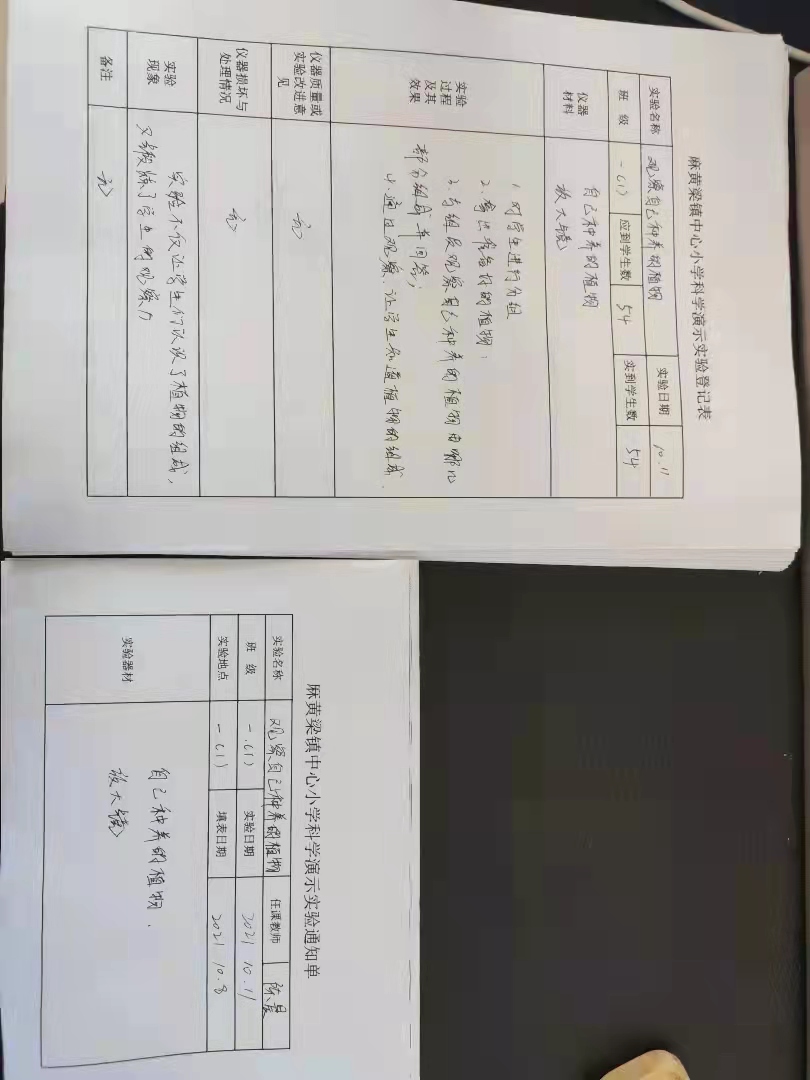 麻黄梁镇中心小学科学演示实验登记表
实验名称 观察自己种养的植物 实验日期 10.11
班 级 一(1) 应到学生数 54 实到学生数 54
仪器材料 自己种养的植物
放大镜
实验过程及其效果 1.对学生进行分组
2.拿出准备好的植物;
3.各组及观察自己种养的植物由哪几
部分组成并回答;
4.通过观察,让学生知道植物的组成.
仪器质量或实验改进意见 无
仪器损坏与处理情况 无
实验现象 实验不仅让学生们认识了植物的组成,
又锻炼了学生的观察力
备注 无
麻黄梁镇中心小学科学演示实验通知单
实验名称 观察自己种养的植物 任课教师
班 级 一.(1) 实验日期 2021 10.11
实验地点 一(1) 填表日期 2021 10.8
实验器材 自己种养的植物.
放大镜